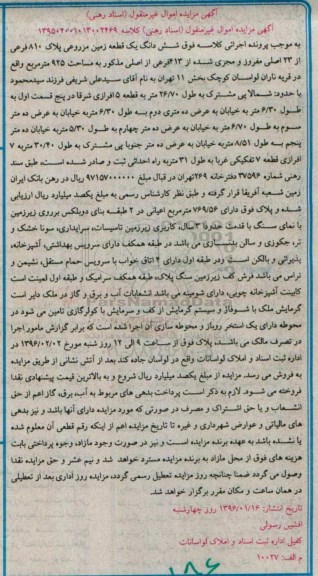 آگهی مزایده اموال غیرمنقول (اسناد رهنی)
آگهی مزایده اموال غیرمنقول (اسناد رهنی) کلاسه ۱۳۹۵۰۴۰۰۱۰۱۳۰۰۲۴۶۹
به موجب پرونده اجرائی کلاسه فوق شش دانگ یک قطعه زمین مزروعی پلاک ۸۱۰ فرعی
از ۲۳ اصلی مفروز و مجزی شده از ۴۱۳فرعی از اصلی مذکور به مساحت ۹۲۵ مترمربع واقع
در قریه ناران لواسان کوچک بخش ۱۱ تهران به نام آقای سیدعلی شریفی فرزند سیدمحمود
با حدود: شمالا پی مشترک به طول ۲۶/۷۰ متر به قطعه ۵ افرازی شرقا در پنج قسمت اول به
طول ۶/۳۰ متر به خیابان به عرض ده متری دوم به طول ۶/۳۰ متر به خیابان به عرض ده متر
سوم به طول ۶/۷۰ متر به خیابان به عرض ده متر چهارم به طول ۵/۳۰ متر به خیابان ده متر
پنجم به طول ۸/۵۱ متر به خیابان به عرض ده متر جنوبا پی مشترک به طول ۳۰/۴۰ متر به ۷
افرازی قطعه ۷ تفکیکی غربا به طول ۳۱ متر به راه احداثی ثبت و صادر شده است، طبق سند
رهنی شماره ۳۷۵۹۶ دفترخانه ۲۶۹ تهران در قبال مبلغ ۹۷۱۵۷۰۰۰۰۰۰ ریال در رهن بانک ایران
زمین شعبه آفریقا قرار گرفته و طبق نظر کارشناس رسمی به مبلغ یکصد میلیارد ریال ارزیابی
شده و پلاک فوق دارای ۷۶۹/۵۶ مترمربع اعیانی در ۲ طبقه بنای دوبلکس برروی زیرزمین
با نمای سنگ با قدمت حدودا ۳ سال، کاربری زیرزمین تاسیسات، سرایداری، سونا خشک و
تر، جکوزی و سالن می باشد در طبقه همکف دارای سرویس بهداشتی، آشپزخانه،
پذیرائی و بالکن است ودر طبقه اول دارای ۴ اتاق خواب با سرویس حمام مستقل، نشیمن و
تراس می باشد فرش کف زیرزمین سنگ پلاک، طبقه همکف سرامیک و طبقه اول لمینت است
کابینت آشپزخانه چوبی، دارای شومینه می باشد انشعابات آب و برق و گاز در ملک دایر است
گرمایش ملک با شوفاژ و سیستم گرمایش از کف و سرمایش با کولرگازی تامین می شود در
محوطه دارای یک استخر روباز و محوطه سازی آن اجرا شده است که برابر گزارش مامور اجرا
در تصرف مالک می باشد، پلاک فوق از ساعت ۹ الی ۱۲ روز شنبه مورخ ۱۳۹۶/۰۲/۰۲ در
اداره ثبت اسناد و املاک لواسانات واقع در لواسان جاده کند بعد از آتش نشانی از طریق مزایده
به فروش می رسد. مزایده از مبلغ یکصد میلیارد ریال شروع و به بالاترین قیمت پیشنهادی نقدا
فروخته می شود. لازم به ذکر است پرداخت بدهی های مربوط به آب، برق، گاز اعم از حق
انشعاب و یا حق اشتراک و مصرف در صورتی که مورد مزایده دارای آنها باشد و نیز بدهی
های مالیاتی و عوارض شهرداری و غیره تا تاریخ مزایده اعم از اینکه رقم قطعی آن معلوم شده
یا نشده باشد به عهده برنده مزایده است و نیز در صورت وجود مازاد، وجوه پرداختی بابت
هزینه های فوق از محل مازاد به برنده مزایده مسترد خواهد شد و نیم عشر و حق مزایده نقدا
وصول می گردد ضمنا چنانچه روز مزایده تعطیل رسمی گردد، مزایده روز اداری بعد از تعطیلی
در همان ساعت و مکان مقرر برگزار خواهد شد.
تاریخ انتشار: ۱۳۹۶/۰۱/۱۶ روز چهارشنبه
افشین رسولی
کفیل اداره ثبت اسناد و املاک لواسانات
م الف: ۱۰۰۲۷